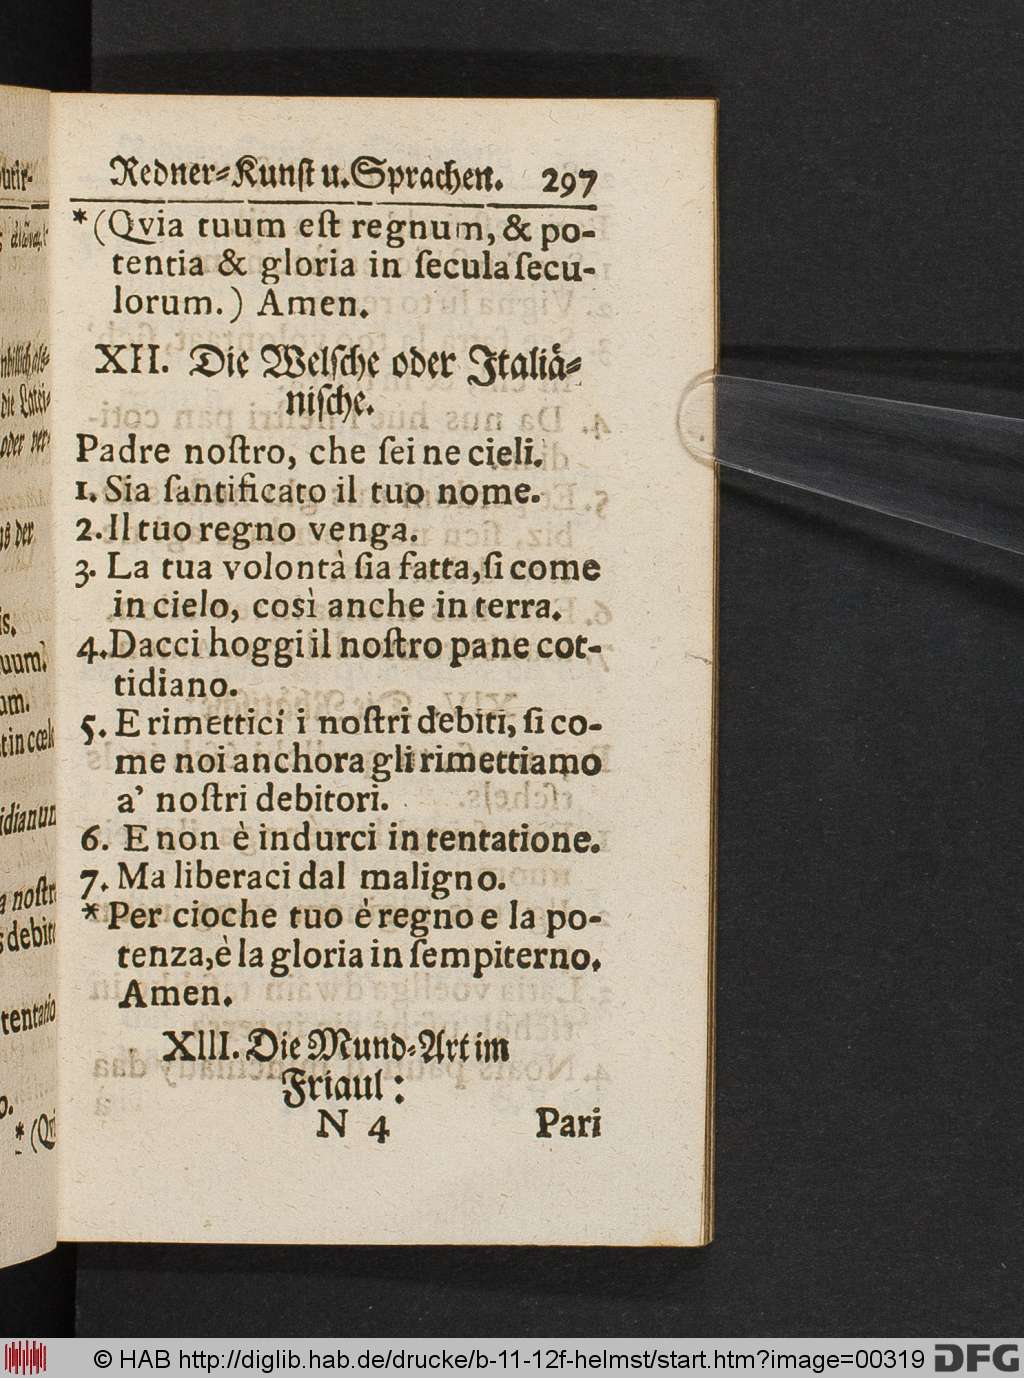 Redner-Kunst u. Sprachen. 297
*(Qvia tuum eſt regnum, & po-
tentia & gloria in ſecula ſecu-
lorum.) Amen.
XII. Die Welſche oder Italiä-
niſche.
Padre noſtro, che ſei ne cieli.
1. Sia ſantificato il tuo nome.
2. Il tuo regno venga.
3. La tua volontà ſia fatta, ſi come
in cielo, così anche in terra.
4. Dacci hoggi il noſtro pane cot-
tidiano.
5. E rimettici i noſtri debiti, ſi co-
me noi anchora gli rimettiamo
a' noſtri debitori.
6. E non è indurci in tentatione.
7. Ma liberaci dal maligno.
* Per cioche tuo è regno e la po-
tenza, è la gloria in ſempiterno.
Amen.
XIII. Die Mund-Art im
Friaul:
N 4 Pari
© HAB http://diglib.hab.de/drucke/b-11-12f-helmst/start.htm?image=00319 DFG